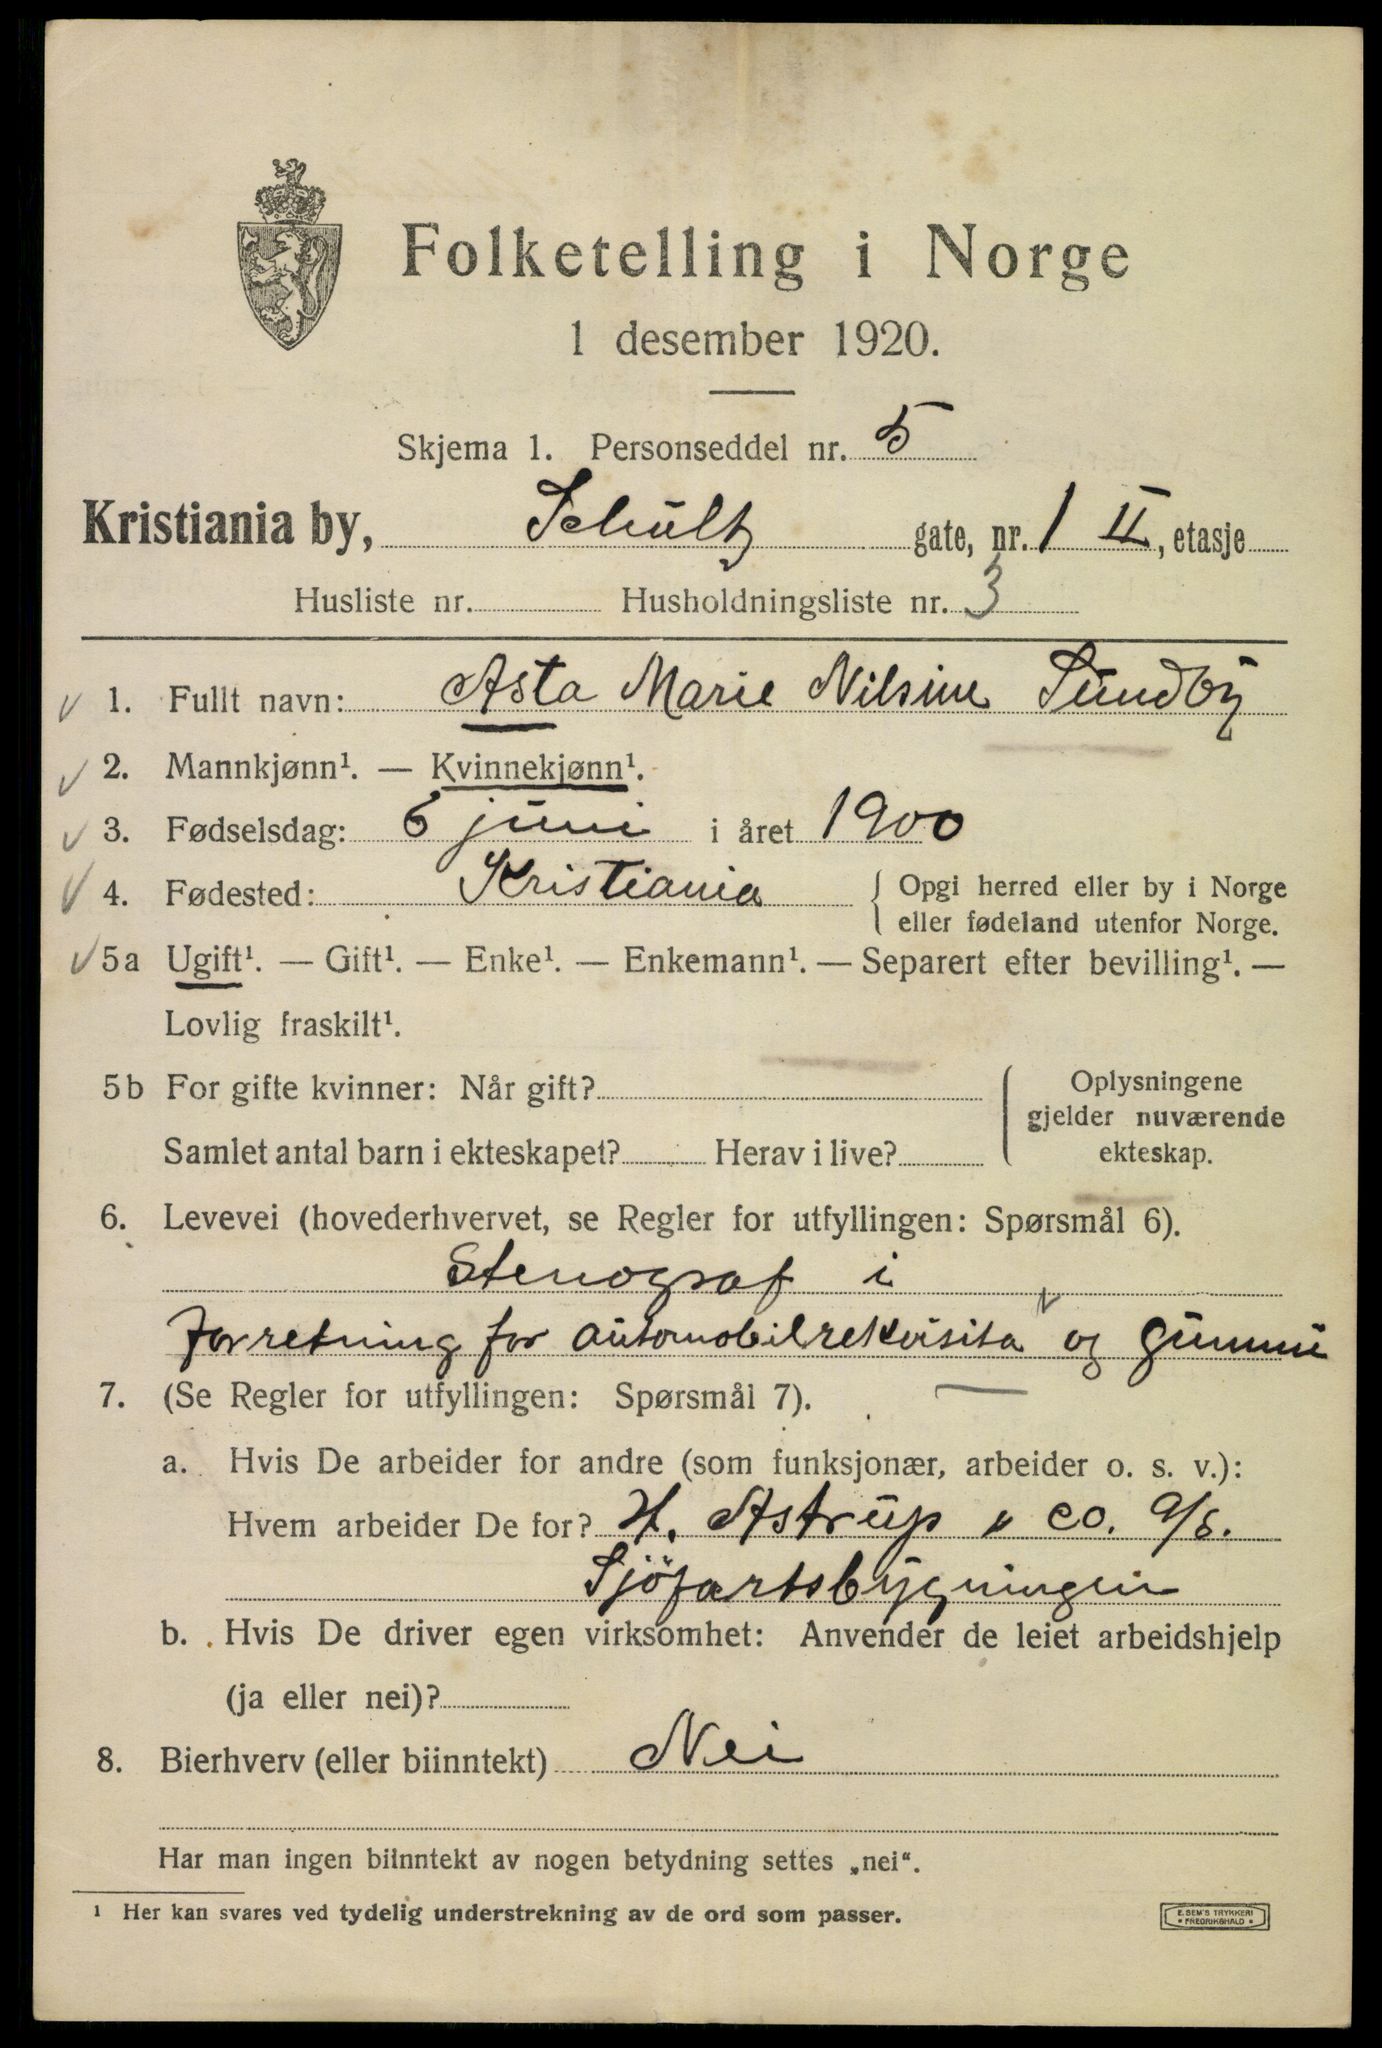 Folketelling i Norge
1 desember 1920.
Skjema 1. Personseddel nr. 5
Kristiania by, Schultz gate, nr. 1 II, etasje
Husliste nr. Husholdningsliste nr. 3
1. Fullt navn: Asta Marie Nilsine Sundby
2. Mannkjønn¹. — Kvinnekjønn¹.
3. Fødselsdag: 6 juni i året 1900
4. Fødested: Kristiania { Opgi herred eller by i Norge
eller fødeland utenfor Norge.
5a Ugift¹. — Gift¹. — Enke¹. — Enkemann¹. — Separert efter bevilling¹. —
Lovlig fraskilt¹.
5b For gifte kvinner: Når gift? { Oplysningene
gjelder nuværende
Samlet antal barn i ekteskapet? Herav i live? ekteskap.
6. Levevei (hovederhvervet, se Regler for utfyllingen: Spørsmål 6).
Stenograf i
forretning for automobilrekvisita og gummi
7. (Se Regler for utfyllingen: Spørsmål 7).
a. Hvis De arbeider for andre (som funksjonær, arbeider o. s. v.):
Hvem arbeider De for? H. Astrup & Co. A/S.
Sjöfartsbygningen
b. Hvis De driver egen virksomhet: Anvender de leiet arbeidshjelp
(ja eller nei)?
8. Bierhverv (eller biinntekt) Nei
Har man ingen biinntekt av nogen betydning settes „nei“.
¹ Her kan svares ved tydelig understrekning av de ord som passer.
E. SEM'S TRYKKERI
• FREDRIKSHALD •